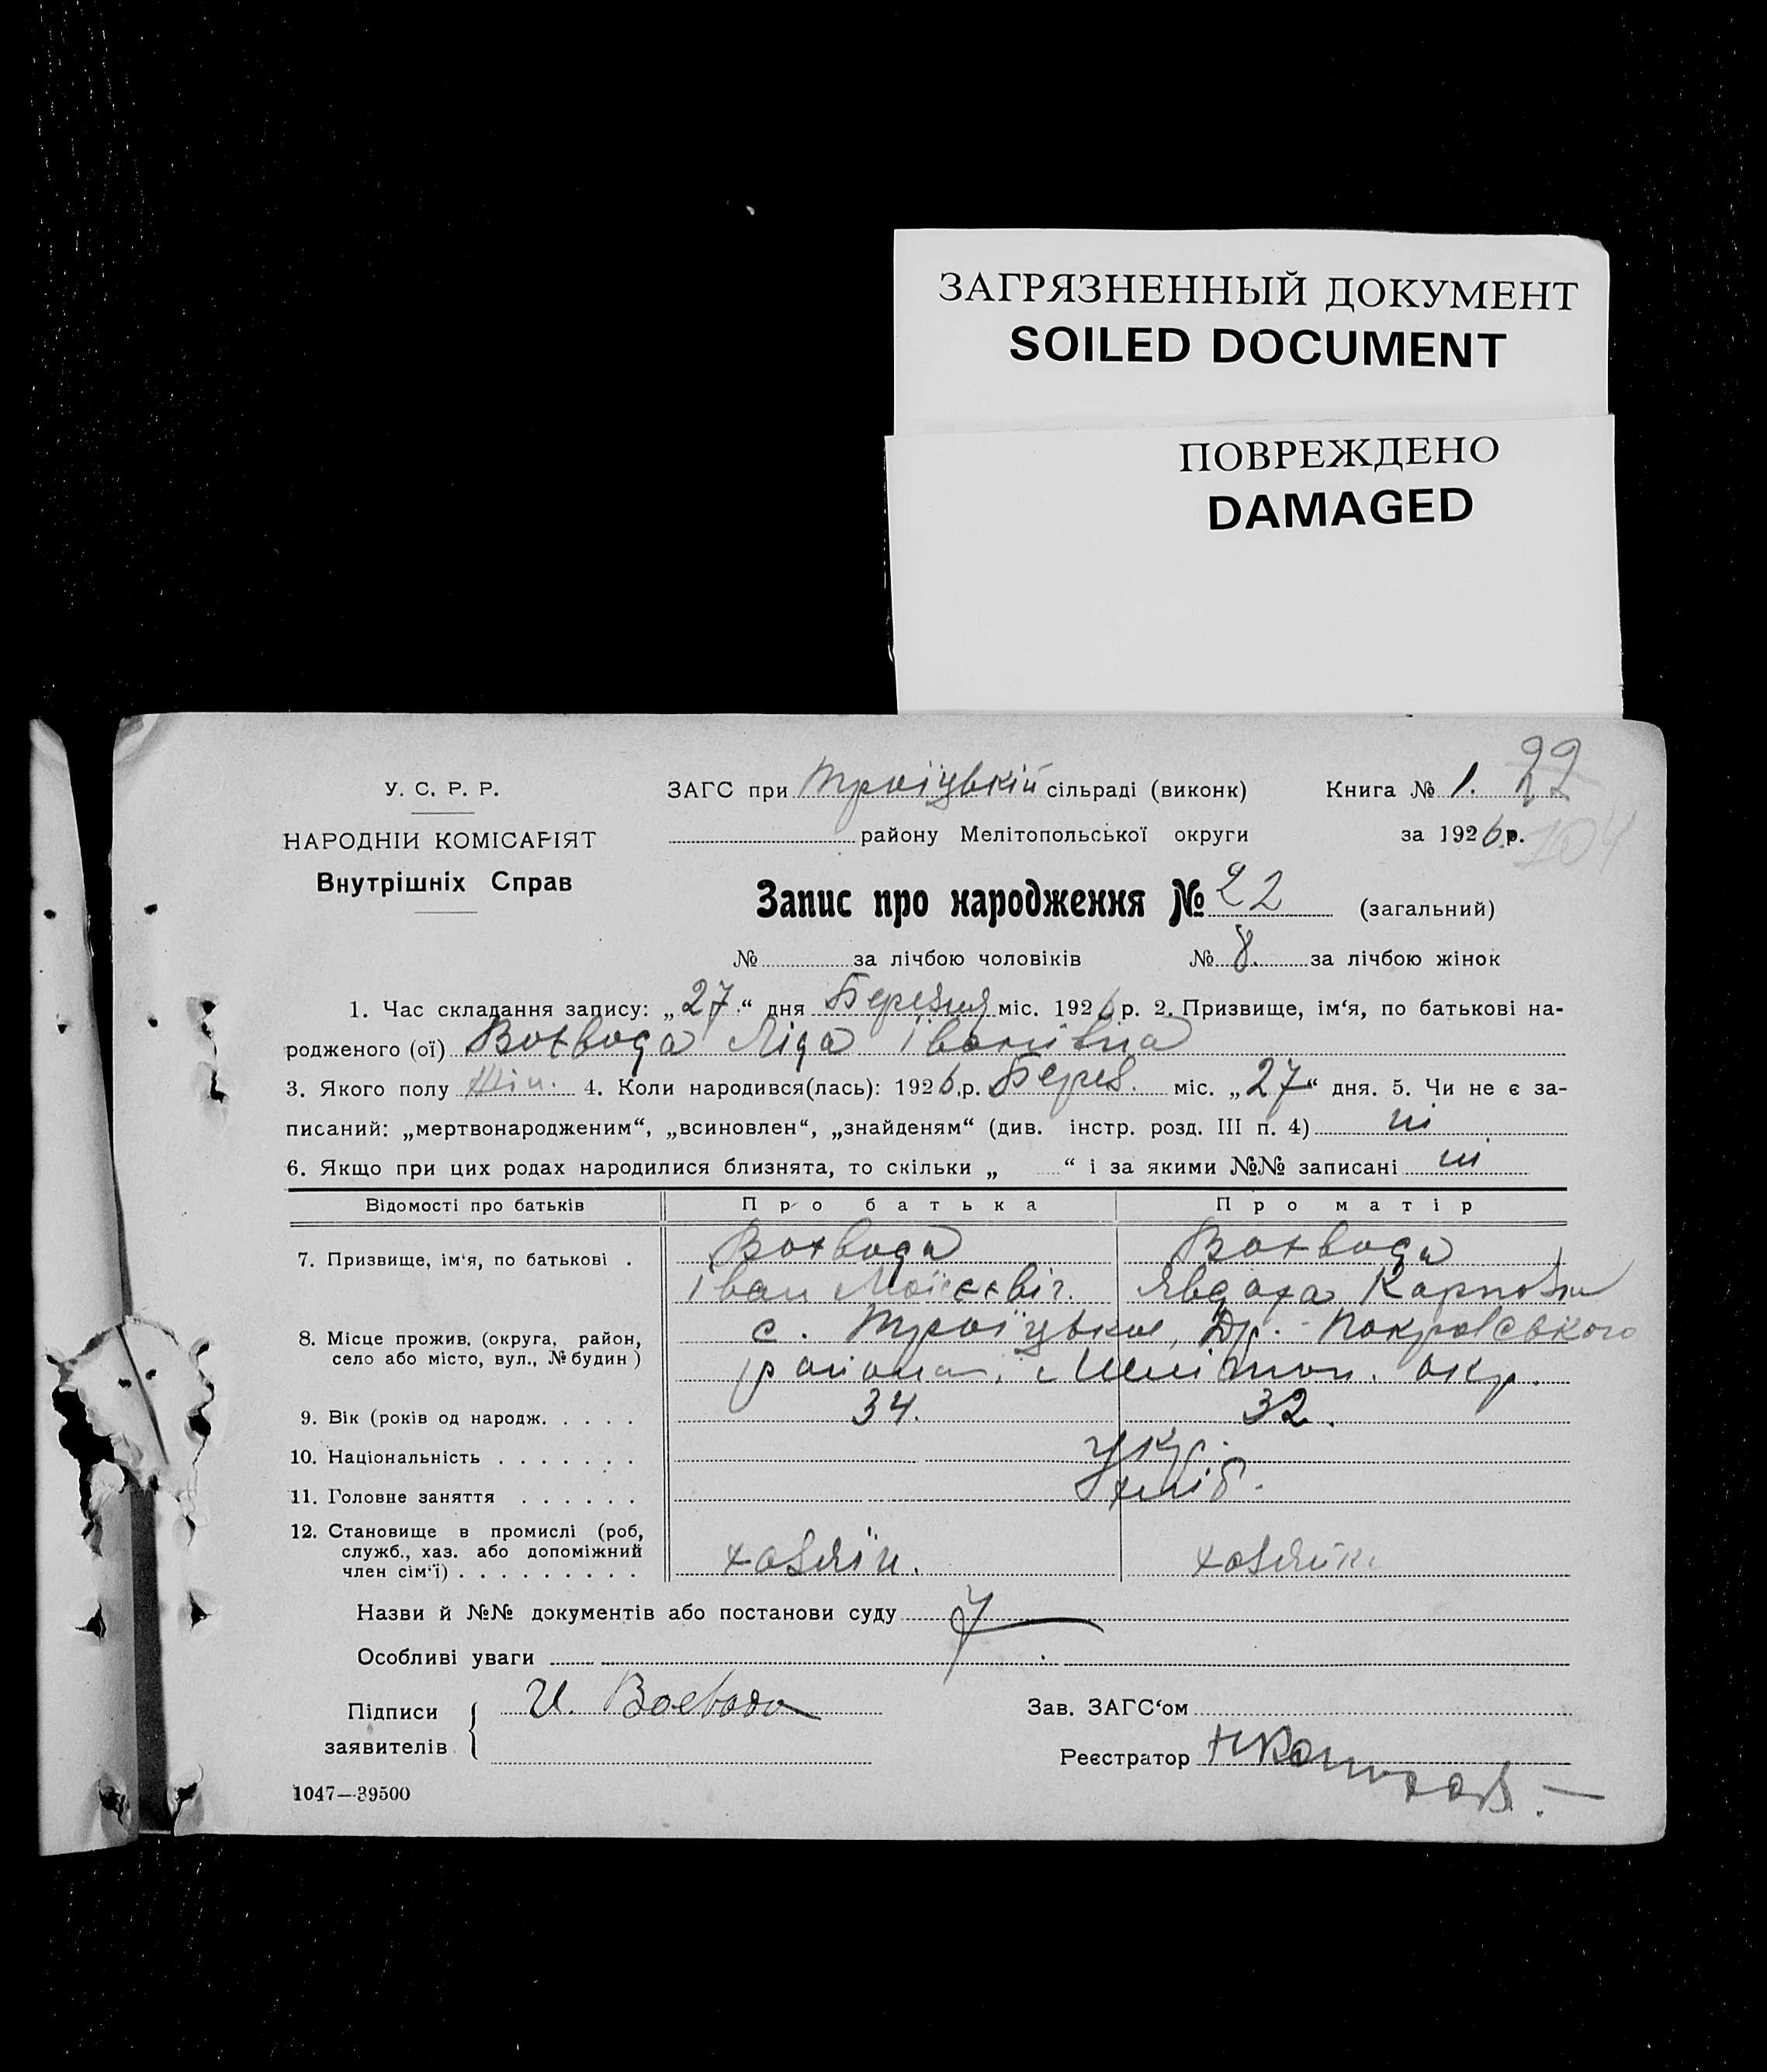 ЗАГРЯЗНЕННЫЙ ДОКУМЕНТ
SOILED DOCUMENT
ПОВРЕЖДЕНО
DAMAGED
22
104
У. С. Р. Р.
НАРОДНІЙ КОМІСАРІЯТ
Внутрішніх Справ
ЗАГС при Троїцькій сільраді (виконк) Книга № 1.
району Мелітопольської округи за 1926 р.
Запис про народження № 22 (загальний)
№ за лічбою чоловіків № 8. за лічбою жінок
1. Час складання запису: „27“ дня Березня міс. 1926 р. 2. Призвище, ім‘я, по батькові на-
родженого (ої) Воєвода Ліда Іванівна
3. Якого полу Жін. 4. Коли народився(лась): 1926 р. Берез. міс. „27“ дня. 5. Чи не є за-
писаний: „мертвонародженим“, „всиновлен“, „знайденям“ (див. інстр. розд. III п. 4) ні
6. Якщо при цих родах народилися близнята, то скільки „ “ і за якими №№ записані ні
Відомості про батьків Про батька Про матір
7. Призвище, ім‘я, по батькові . Воєвода Воєвода
Іван Моїсеєвіч. Явдоха Карповн
8. Місце прожив. (округа, район, с. Троїцьке, Др.-Покровського
село або місто, вул., № будин ) района, Меліт��п. окр.
9. Вік (років од народж. . . . . 34. 32.
10. Національність . . . . . . . Укр.
11. Головне заняття . . . . . . Хліб.
12. Становище в промислі (роб,
служб., хаз. або допоміжний хозяїн. хозяйк
член сім‘ї) . . . . . . . . .
Назви й №№ документів або постанови суду
Особливі уваги
Підписи И. Воевода Зав. ЗАГС‘ом
заявителів Реєстратор
1047—39500